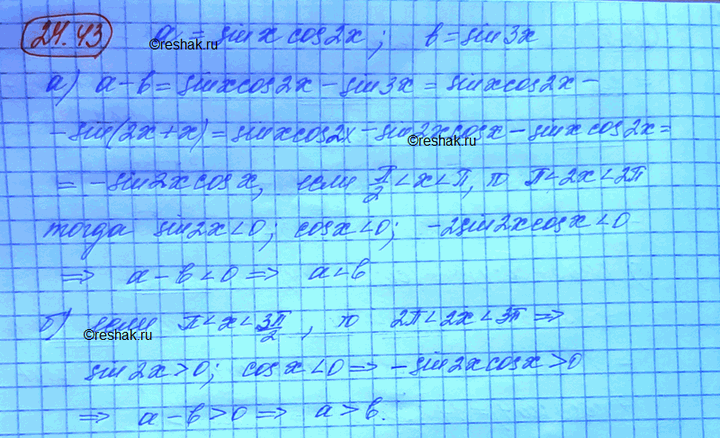 24.43 a = sin x cos 2x ; b = sin 3x
©reshak.ru
а) a - b = sin x cos 2x - sin 3x = sin x cos 2x -
- sin(2x + x) = sin x cos 2x - sin 2x cos x - sin x cos 2x =
©reshak.ru
= - sin 2x cos x, если π/2 < x < π, то π < 2x < 2π
тогда sin 2x < 0; cos x < 0; -2sin 2x cos x < 0
⇒ a - b < 0 ⇒ a < b
б) если π < x < 3π/2, то 2π < 2x < 3π ⇒
©reshak.ru
sin 2x > 0; cos x < 0 ⇒ - sin 2x cos x > 0
⇒ a - b > 0 ⇒ a > b.